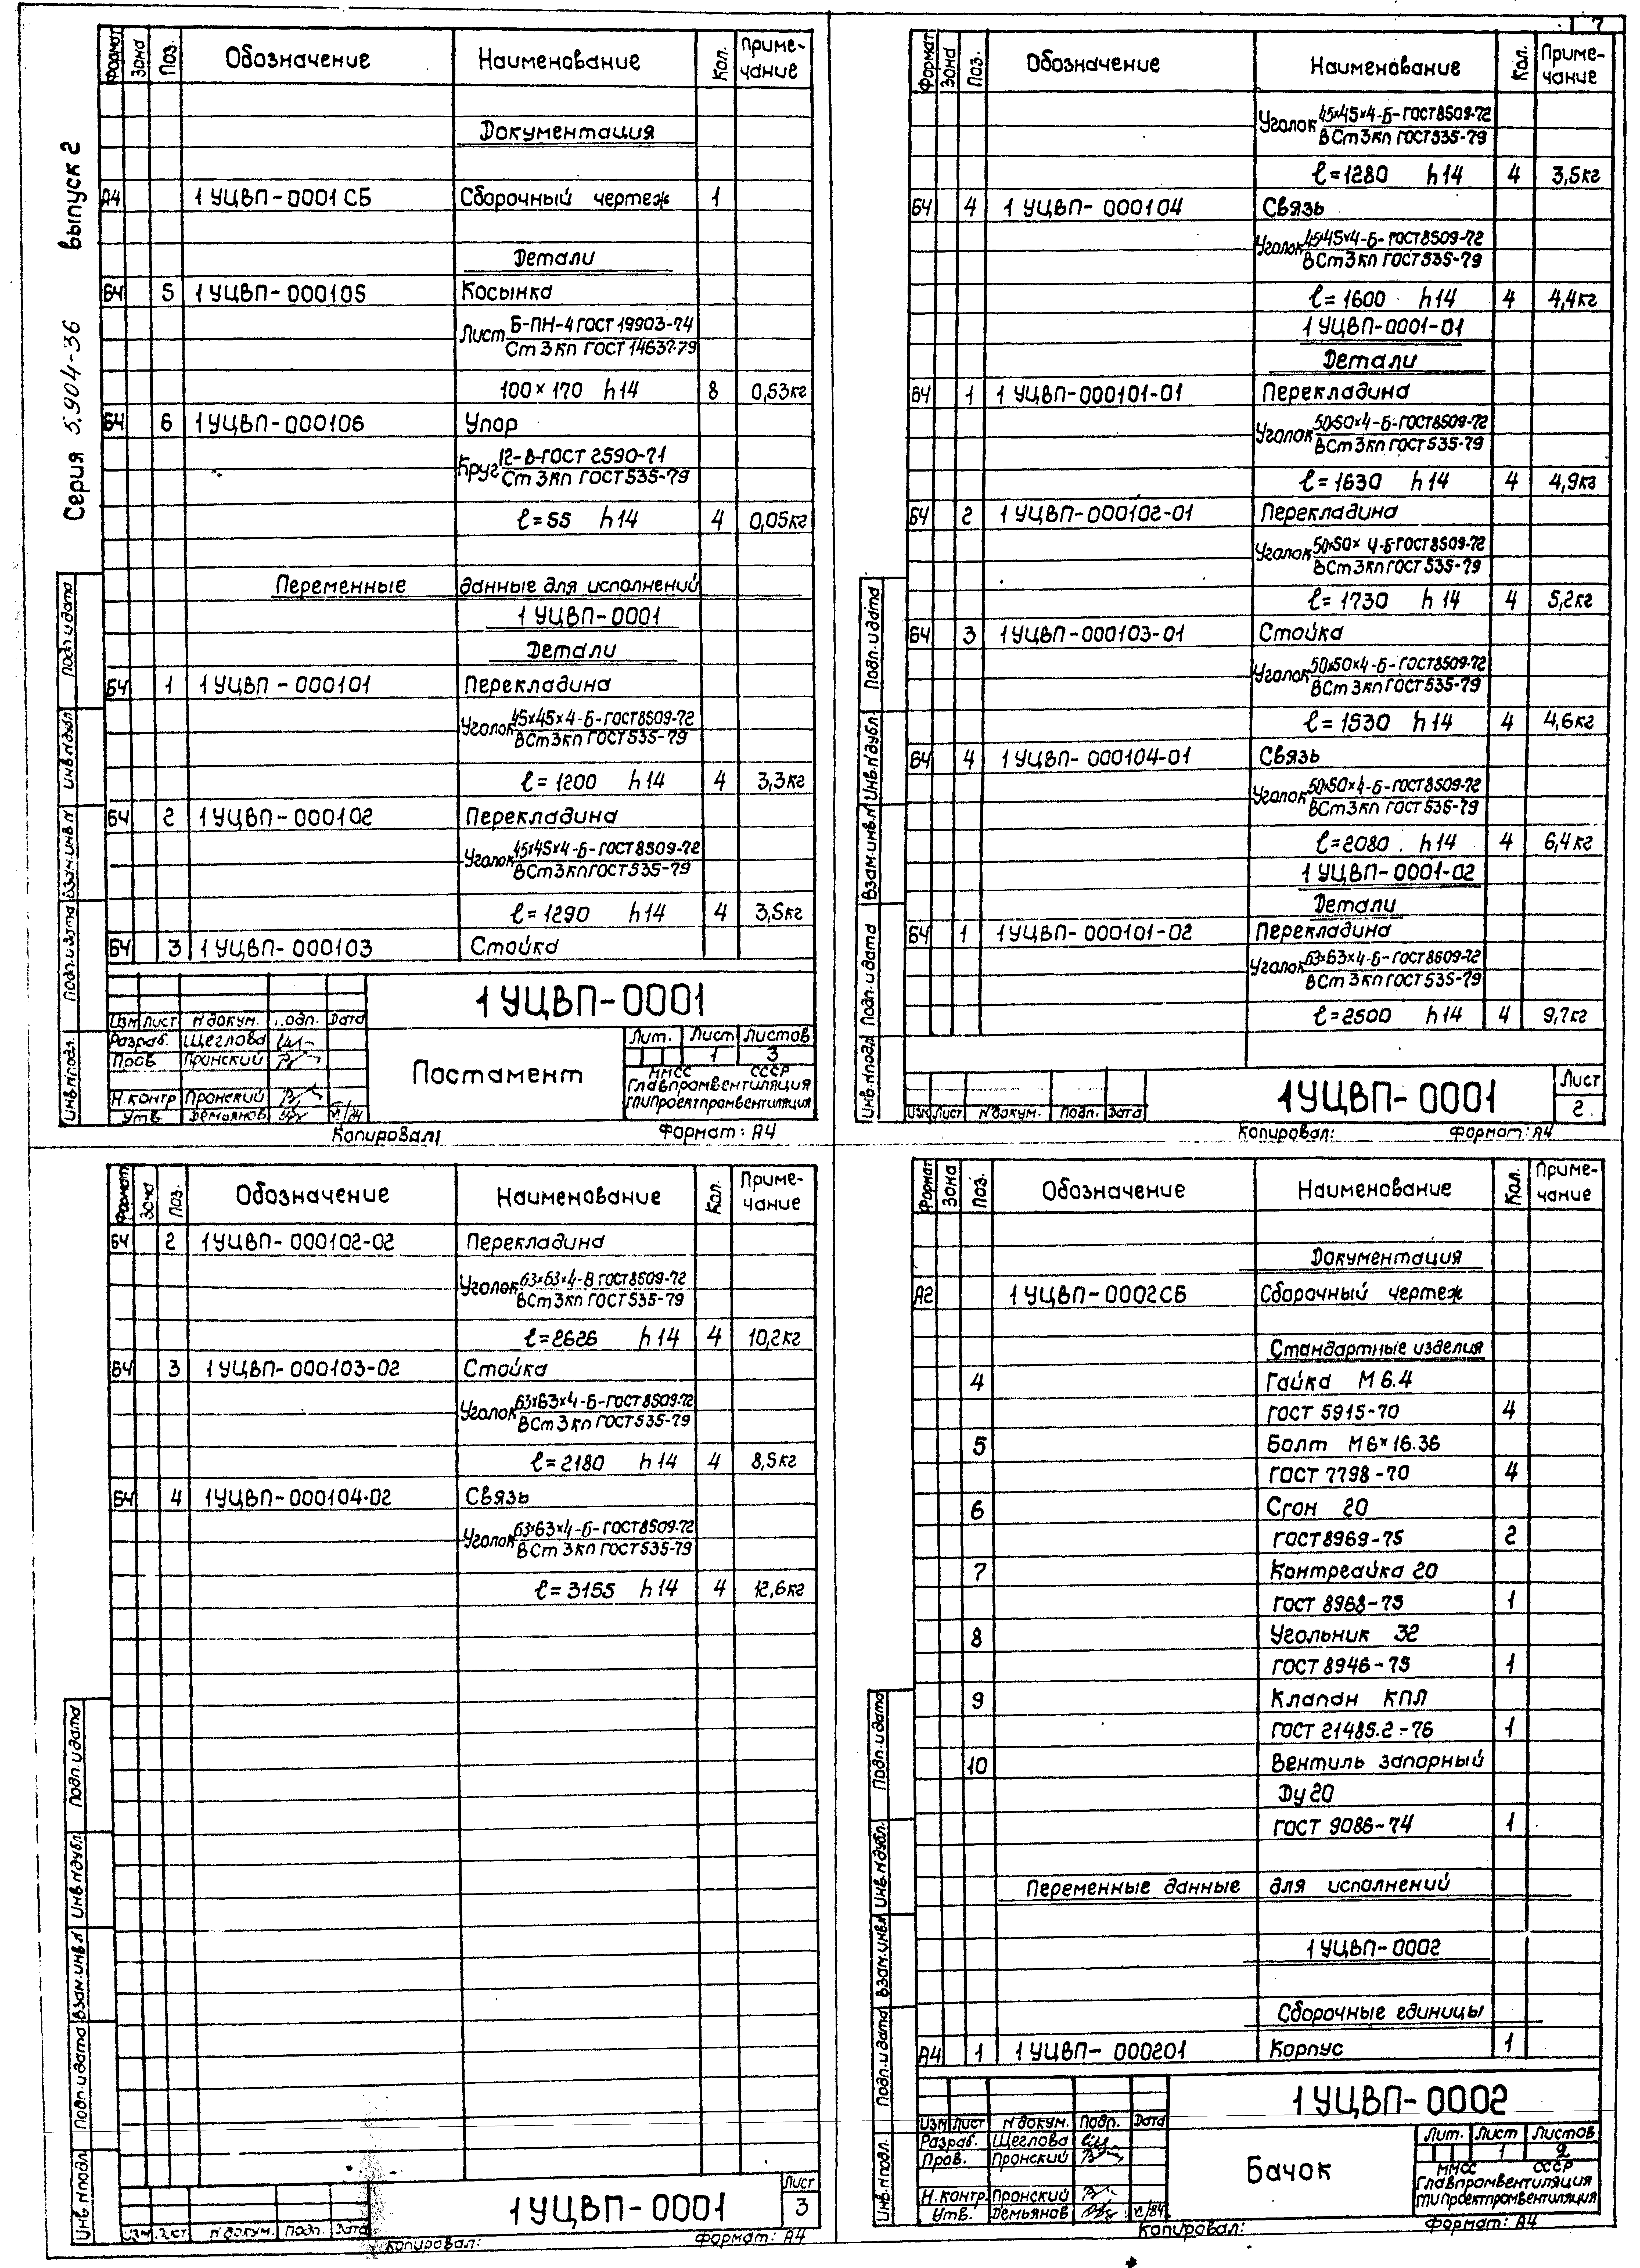 7
Серия 5.904-36 выпуск 2
Формат Зона Поз. Обозначение Наименование Кол. Примечание
Документация
А4 1 УЦВП-0001 СБ Сборочный чертеж 1
Детали
БЧ 5 1 УЦВП-000105 Косынка
Лист Б-ПН-4 ГОСТ 19903-74
Ст 3 кп ГОСТ 14637-79
100×170 h14 8 0,53кг
БЧ 6 1 УЦВП-000106 Упор
Круг 12-В-ГОСТ 2590-71
Ст 3кп ГОСТ 535-79
ℓ=55 h14 4 0,05кг
Переменные данные для исполнений
1 УЦВП-0001
Детали
БЧ 1 1 УЦВП-000101 Перекладина
Уголок 45×45×4-Б-ГОСТ8509-72
ВСт3кп ГОСТ535-79
ℓ=1200 h14 4 3,3кг
БЧ 2 1 УЦВП-000102 Перекладина
Уголок 45×45×4-Б-ГОСТ8509-72
ВСт3кп ГОСТ535-79
ℓ=1290 h14 4 3,5кг
БЧ 3 1 УЦВП-000103 Стойка
1 УЦВП-0001
Изм Лист N докум. Подп. Дата
Разраб. Щеглова
Пров. Пронский
Н.контр Пронский
Утв. Демьянов VI/84
Постамент
Лит. Лист Листов
1 3
ММСС СССР
Главпромвентиляция
ГПИПроектпромвентиляция
Инв.N подл. Подп. и дата Взам.инв.N Инв.N дубл. Подп. и дата
Копировал: Формат: А4
Формат Зона Поз. Обозначение Наименование Кол. Примечание
Уголок 45×45×4-Б-ГОСТ8509-72
ВСт3кп ГОСТ535-79
ℓ=1280 h14 4 3,5кг
БЧ 4 1 УЦВП-000104 Связь
Уголок 45×45×4-Б-ГОСТ8509-72
ВСт3кп ГОСТ535-79
ℓ=1600 h14 4 4,4кг
1 УЦВП-0001-01
Детали
БЧ 1 1 УЦВП-000101-01 Перекладина
Уголок 50×50×4-Б-ГОСТ8509-72
ВСт3кп ГОСТ535-79
ℓ=1630 h14 4 4,9кг
БЧ 2 1 УЦВП-000102-01 Перекладина
Уголок 50×50×4-Б-ГОСТ8509-72
ВСт3кп ГОСТ535-79
ℓ=1730 h14 4 5,2кг
БЧ 3 1 УЦВП-000103-01 Стойка
Уголок 50×50×4-Б-ГОСТ8509-72
ВСт3кп ГОСТ535-79
ℓ=1530 h14 4 4,6кг
БЧ 4 1 УЦВП-000104-01 Связь
Уголок 50×50×4-Б-ГОСТ8509-72
ВСт3кп ГОСТ535-79
ℓ=2080 h14 4 6,4кг
1 УЦВП-0001-02
Детали
БЧ 1 1 УЦВП-000101-02 Перекладина
Уголок 63×63×4-Б-ГОСТ8609-72
ВСт3кп ГОСТ535-79
ℓ=2500 h14 4 9,7кг
Изм Лист N докум. Подп. Дата
1 УЦВП-0001
Лист
2
Инв.N подл. Подп. и дата Взам.инв.N Инв.N дубл. Подп. и дата
Копировал: Формат: А4
Формат Зона Поз. Обозначение Наименование Кол. Примечание
БЧ 2 1 УЦВП-000102-02 Перекладина
Уголок 63×63×4-В ГОСТ8509-72
ВСт3кп ГОСТ535-79
ℓ=2626 h14 4 10,2кг
БЧ 3 1 УЦВП-000103-02 Стойка
Уголок 63×63×4-Б-ГОСТ8509-72
ВСт3кп ГОСТ535-79
ℓ=2180 h14 4 8,5кг
БЧ 4 1 УЦВП-000104-02 Связь
Уголок 63×63×4-Б-ГОСТ8509-72
ВСт3кп ГОСТ535-79
ℓ=3155 h14 4 12,6кг
Изм. Лист N докум. Подп. Дата
1 УЦВП-0001
Лист
3
Инв.N подл. Подп. и дата Взам.инв.N Инв.N дубл. Подп. и дата
Копировал: Формат: А4
Формат Зона Поз. Обозначение Наименование Кол. Примечание
Документация
А2 1 УЦВП-0002СБ Сборочный чертеж
Стандартные изделия
4 Гайка М6.4
ГОСТ 5915-70 4
5 Болт М6×16.36
ГОСТ 7798-70 4
6 Сгон 20
ГОСТ8969-75 2
7 Контргайка 20
ГОСТ 8968-75 1
8 Угольник 32
ГОСТ 8946-75 1
9 Клапан КПЛ
ГОСТ 21485.2-76 1
10 Вентиль запорный
Ду 20
ГОСТ 9086-74 1
Переменные данные для исполнений
1 УЦВП-0002
Сборочные единицы
А4 1 1 УЦВП-000201 Корпус 1
1 УЦВП-0002
Изм Лист N докум. Подп. Дата
Разраб. Щеглова
Пров. Пронский
Н.контр. Пронский
Утв. Демьянов VI/84
Бачок
Лит. Лист Листов
1 2
ММСС СССР
Главпромвентиляция
ГПИПроектпромвентиляция
Инв.N подл. Подп. и дата Взам.инв.N Инв.N дубл. Подп. и дата
Копировал: Формат: А4